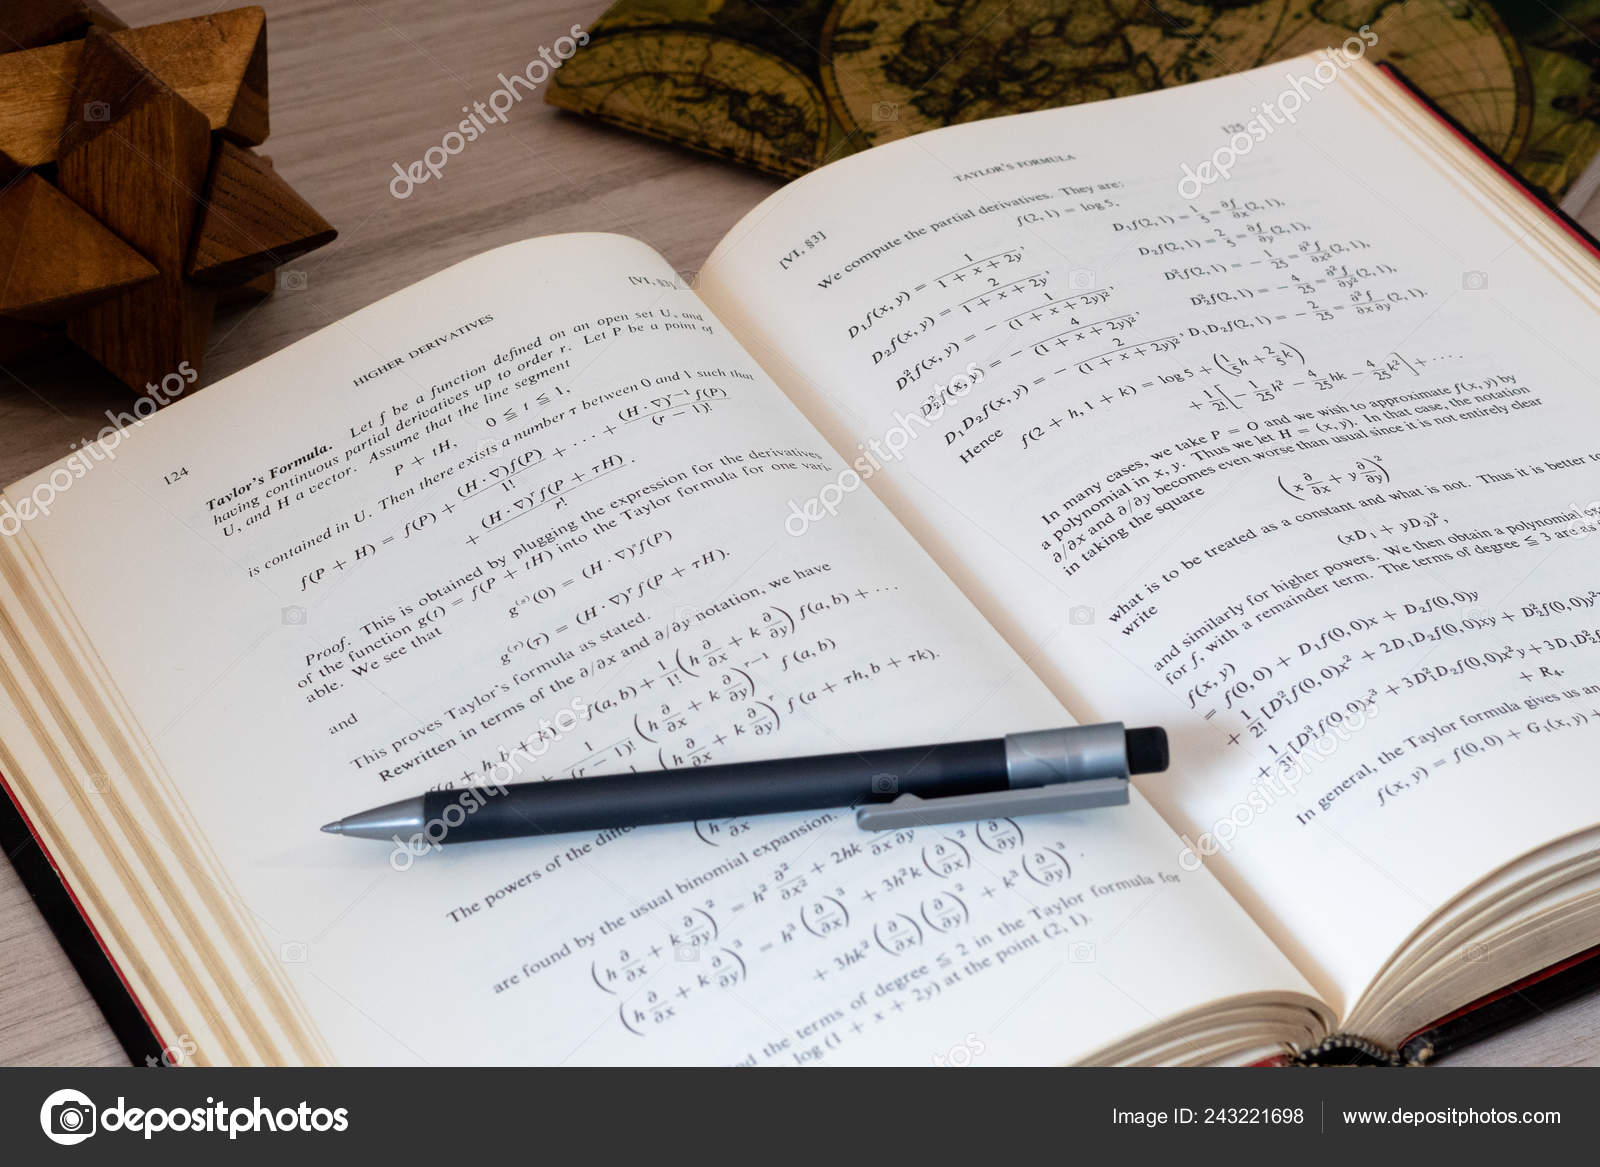 124
HIGHER DERIVATIVES
[VI, §3]
Taylor's Formula. Let f be a function defined on an open set U, and
having continuous partial derivatives up to order r. Let P be a point of
U, and H a vector. Assume that the line segment
P + tH, 0 ≦ t ≦ 1,
is contained in U. Then there exists a number τ between 0 and 1 such that
f(P + H) = f(P) + (H · ∇)f(P)/1! + . . . + (H · ∇)^{r−1} f(P)/(r − 1)!
+ (H · ∇)^r f(P + τH)/r! .
Proof. This is obtained by plugging the expression for the derivatives
of the function g(t) = f(P + tH) into the Taylor formula for one vari-
able. We see that
g^{(s)}(0) = (H · ∇)^s f(P)
and
g^{(r)}(τ) = (H · ∇)^r f(P + τH).
This proves Taylor's formula as stated.
Rewritten in terms of the ∂/∂x and ∂/∂y notation, we have
f(a + h, b + k) = f(a, b) + 1/1! (h ∂/∂x + k ∂/∂y) f(a, b) + . . .
+ 1/(r − 1)! (h ∂/∂x + k ∂/∂y)^{r−1} f(a, b)
(h ∂/∂x + k ∂/∂y)^r f(a + τh, b + τk).
The powers of the
(h ∂/∂x
are found by the usual binomial expansion.
(h ∂/∂x + k ∂/∂y)² = h² ∂²/∂x² + 2hk ∂x ∂y
(h ∂/∂x + k ∂/∂y)³ = h³ (∂/∂x)³ + 3h²k (∂/∂x)² (∂/∂y)
+ 3hk² (∂/∂x) (∂/∂y)² + k³ (∂/∂y)³ .
the terms of degree ≦ 2 in the Taylor formula for
log (1 + x + 2y) at the point (2, 1).
[VI, §3]
TAYLOR'S FORMULA
125
We compute the partial derivatives. They are:
f(2, 1) = log 5,
D₁f(x, y) = 1/(1 + x + 2y), D₁f(2, 1) = 1/5 = ∂f/∂x (2, 1),
D₂f(x, y) = 2/(1 + x + 2y), D₂f(2, 1) = 2/5 = ∂f/∂y (2, 1),
D₁²f(x, y) = − 1/(1 + x + 2y)², D₁²f(2, 1) = − 1/25 = ∂²f/∂x² (2, 1),
D₂²f(x, y) = − 4/(1 + x + 2y)², D₂²f(2, 1) = − 4/25 = ∂²f/∂y² (2, 1),
D₁D₂f(x, y) = − 2/(1 + x + 2y)², D₁D₂f(2, 1) = − 2/25 = ∂²f/∂x ∂y (2, 1).
Hence
f(2 + h, 1 + k) = log 5 + (1/5 h + 2/5 k)
+ 1/2! [− 1/25 h² − 4/25 hk − 4/25 k²] + · · · .
In many cases, we take P = O and we wish to approximate f(x, y) by
a polynomial in x, y. Thus we let H = (x, y). In that case, the notation
∂/∂x and ∂/∂y becomes even worse than usual since it is not entirely clear
in taking the square
(x ∂/∂x + y ∂/∂y)²
what is to be treated as a constant and what is not. Thus it is better to
write
(xD₁ + yD₂)²,
and similarly for higher powers. We then obtain a polynomial
for f, with a remainder term. The terms of degree ≦ 3 are as
f(x, y)
= f(0, 0) + D₁f(0, 0)x + D₂f(0, 0)y
+ 1/2! [D₁²f(0, 0)x² + 2D₁D₂f(0, 0)xy + D₂²f(0, 0)y²
+ 1/3! [D₁³f(0, 0)x³ + 3D₁²D₂f(0, 0)x²y + 3D₁D₂²f
+ R₄.
In general, the Taylor formula gives us an
f(x, y) = f(0, 0) + G₁(x, y) +
depositphotos
depositphotos
depositphotos
depositphotos
depositphotos
depositphotos
depositphotos
depositphotos
depositphotos
depositphotos
depositphotos
Image ID: 243221698
www.depositphotos.com